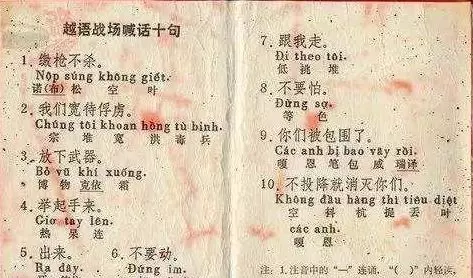 越语战场喊话十句
1. 缴枪不杀。
Nộp súng không giết.
诺(布) 松 空 叶
2. 我们宽待俘虏。
Chúng tôi khoan hồng tù binh.
宗 堆 宽 洪 毒 兵
3. 放下武器。
Bỏ vũ khí xuống.
博 物 克依 霜
4. 举起手来。
Giơ tay lên.
热 呆 连
5. 出来。 6. 不要动。
Ra đây. Đừng im.
7. 跟我走。
Đi theo tôi.
低 挑 堆
8. 不要怕。
Đừng sợ.
等 色
9. 你们被包围了。
Các anh bị bao vây rồi.
嘎 恩 笔 包 威 瑞译
10. 不投降就消灭你们。
Không đầu hàng thì tiêu diệt
空 斗 杭 提 丢 叶
các anh.
嘎 恩
注：1. 注音中的“—”连诵，“( )”内轻读，